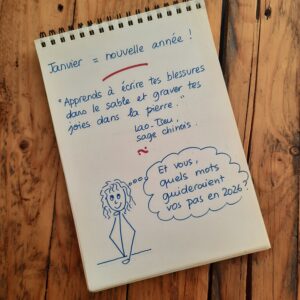 Janvier = nouvelle année !
"Apprends à écrire tes blessures
dans le sable et graver tes
joies dans la pierre."
Lao-Tseu,
sage chinois.
Et vous,
quels mots
guideraient
vos pas en 2026 ?